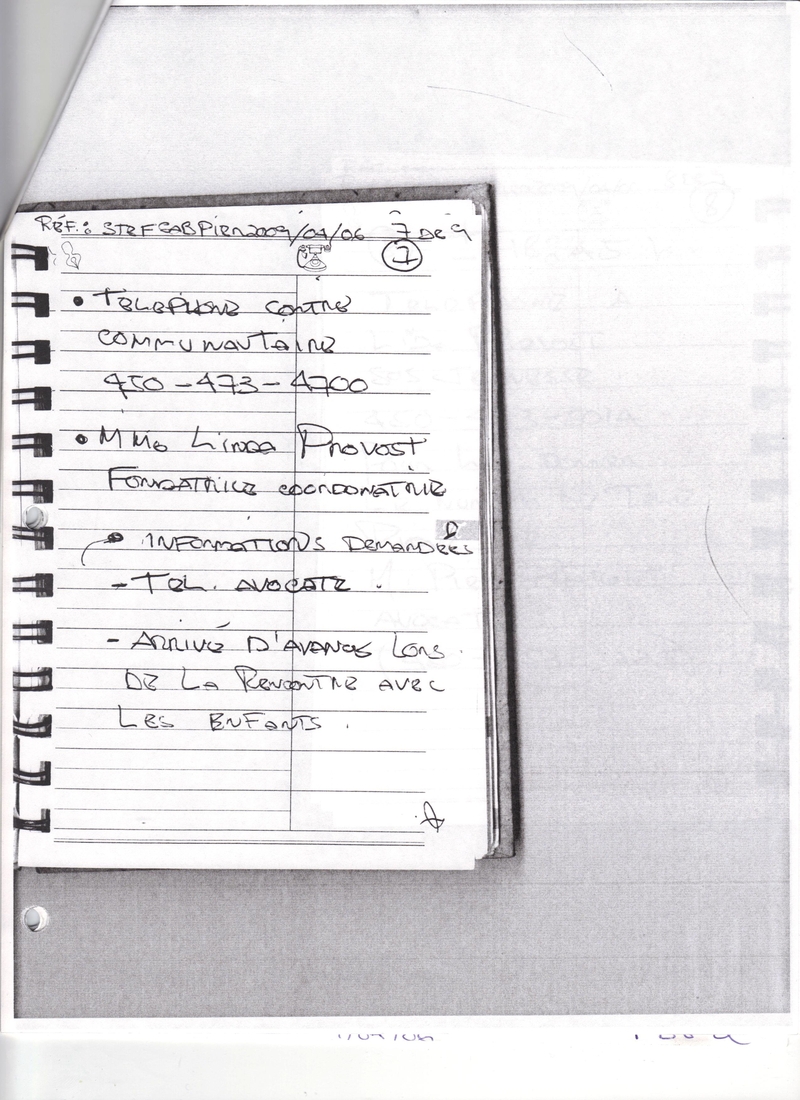 RÉF.: STEFGABPIER2009/04/06 7 DE 9
7
• TÉLÉPHONE CENTRE
COMMUNAUTAIRE
450-473-4700
• MME LINDA PROVOST
FONDATRICE COORDONATRICE
INFORMATIONS DEMANDÉES
- TÉL. AVOCATE.
- ARRIVÉ D'AVANCE LORS
DE LA RENCONTRE AVEC
LES ENFANTS.